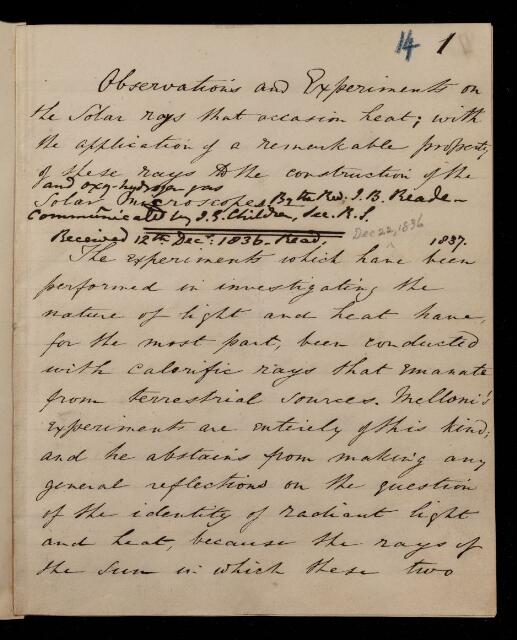 14 1
Observations and Experiments on
the Solar rays that occasion heat; with
the application of a remarkable property
of these rays to the construction of the
and oxy-hydrogen gas
Solar Microscopes. By the Rev. J. B. Reade–
Communicated by J. G. Children, Sec. R.S.
Received 12th Decr. 1836. Read, Dec 22, 1836 1837.
The experiments which have been
performed in investigating the
nature of light and heat have,
for the most part, been conducted
with calorific rays that emanate
from terrestrial sources. Melloni's
experiments are entirely of this kind;
and he abstains from making any
general reflections on the question
of the identity of radiant light
and heat, because the rays of
the sun in which these two